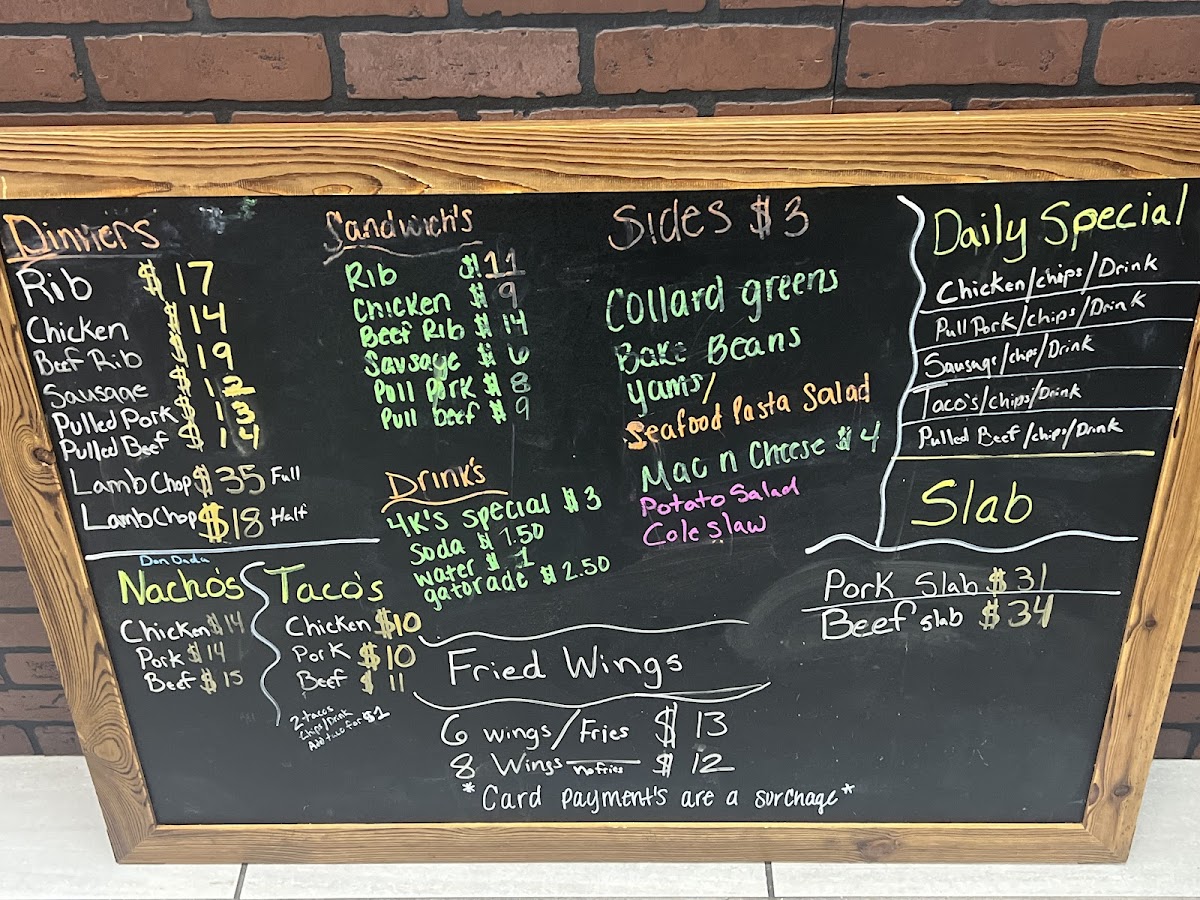 Dinners
Rib $17
Chicken $14
Beef Rib $19
Sausage $12
Pulled Pork $13
Pulled Beef $14
Lamb Chop $35 Full
Lamb Chop $18 Half
Sandwich's
Rib $11
Chicken $9
Beef Rib $14
Sausage $6
Pull Pork $8
Pull beef $9
Drink's
4K's special $3
Soda $1.50
water $1
gatorade $2.50
Sides $3
Collard greens
Bake Beans
yams/
Seafood Pasta Salad
Mac n Cheese $4
Potato Salad
Cole slaw
Daily Special
Chicken/chips/Drink
Pull Pork/chips/Drink
Sausage/chips/Drink
Taco's/chips/Drink
Pulled Beef/chips/Drink
Slab
Pork Slab $31
Beef slab $34
Don Dada
Nacho's
Chicken $14
Pork $14
Beef $15
Taco's
Chicken $10
Pork $10
Beef $11
2 tacos
Chips/Drink
Add taco for $1
Fried Wings
6 wings/Fries $13
8 Wings no fries $12
*Card payment's are a surchage*